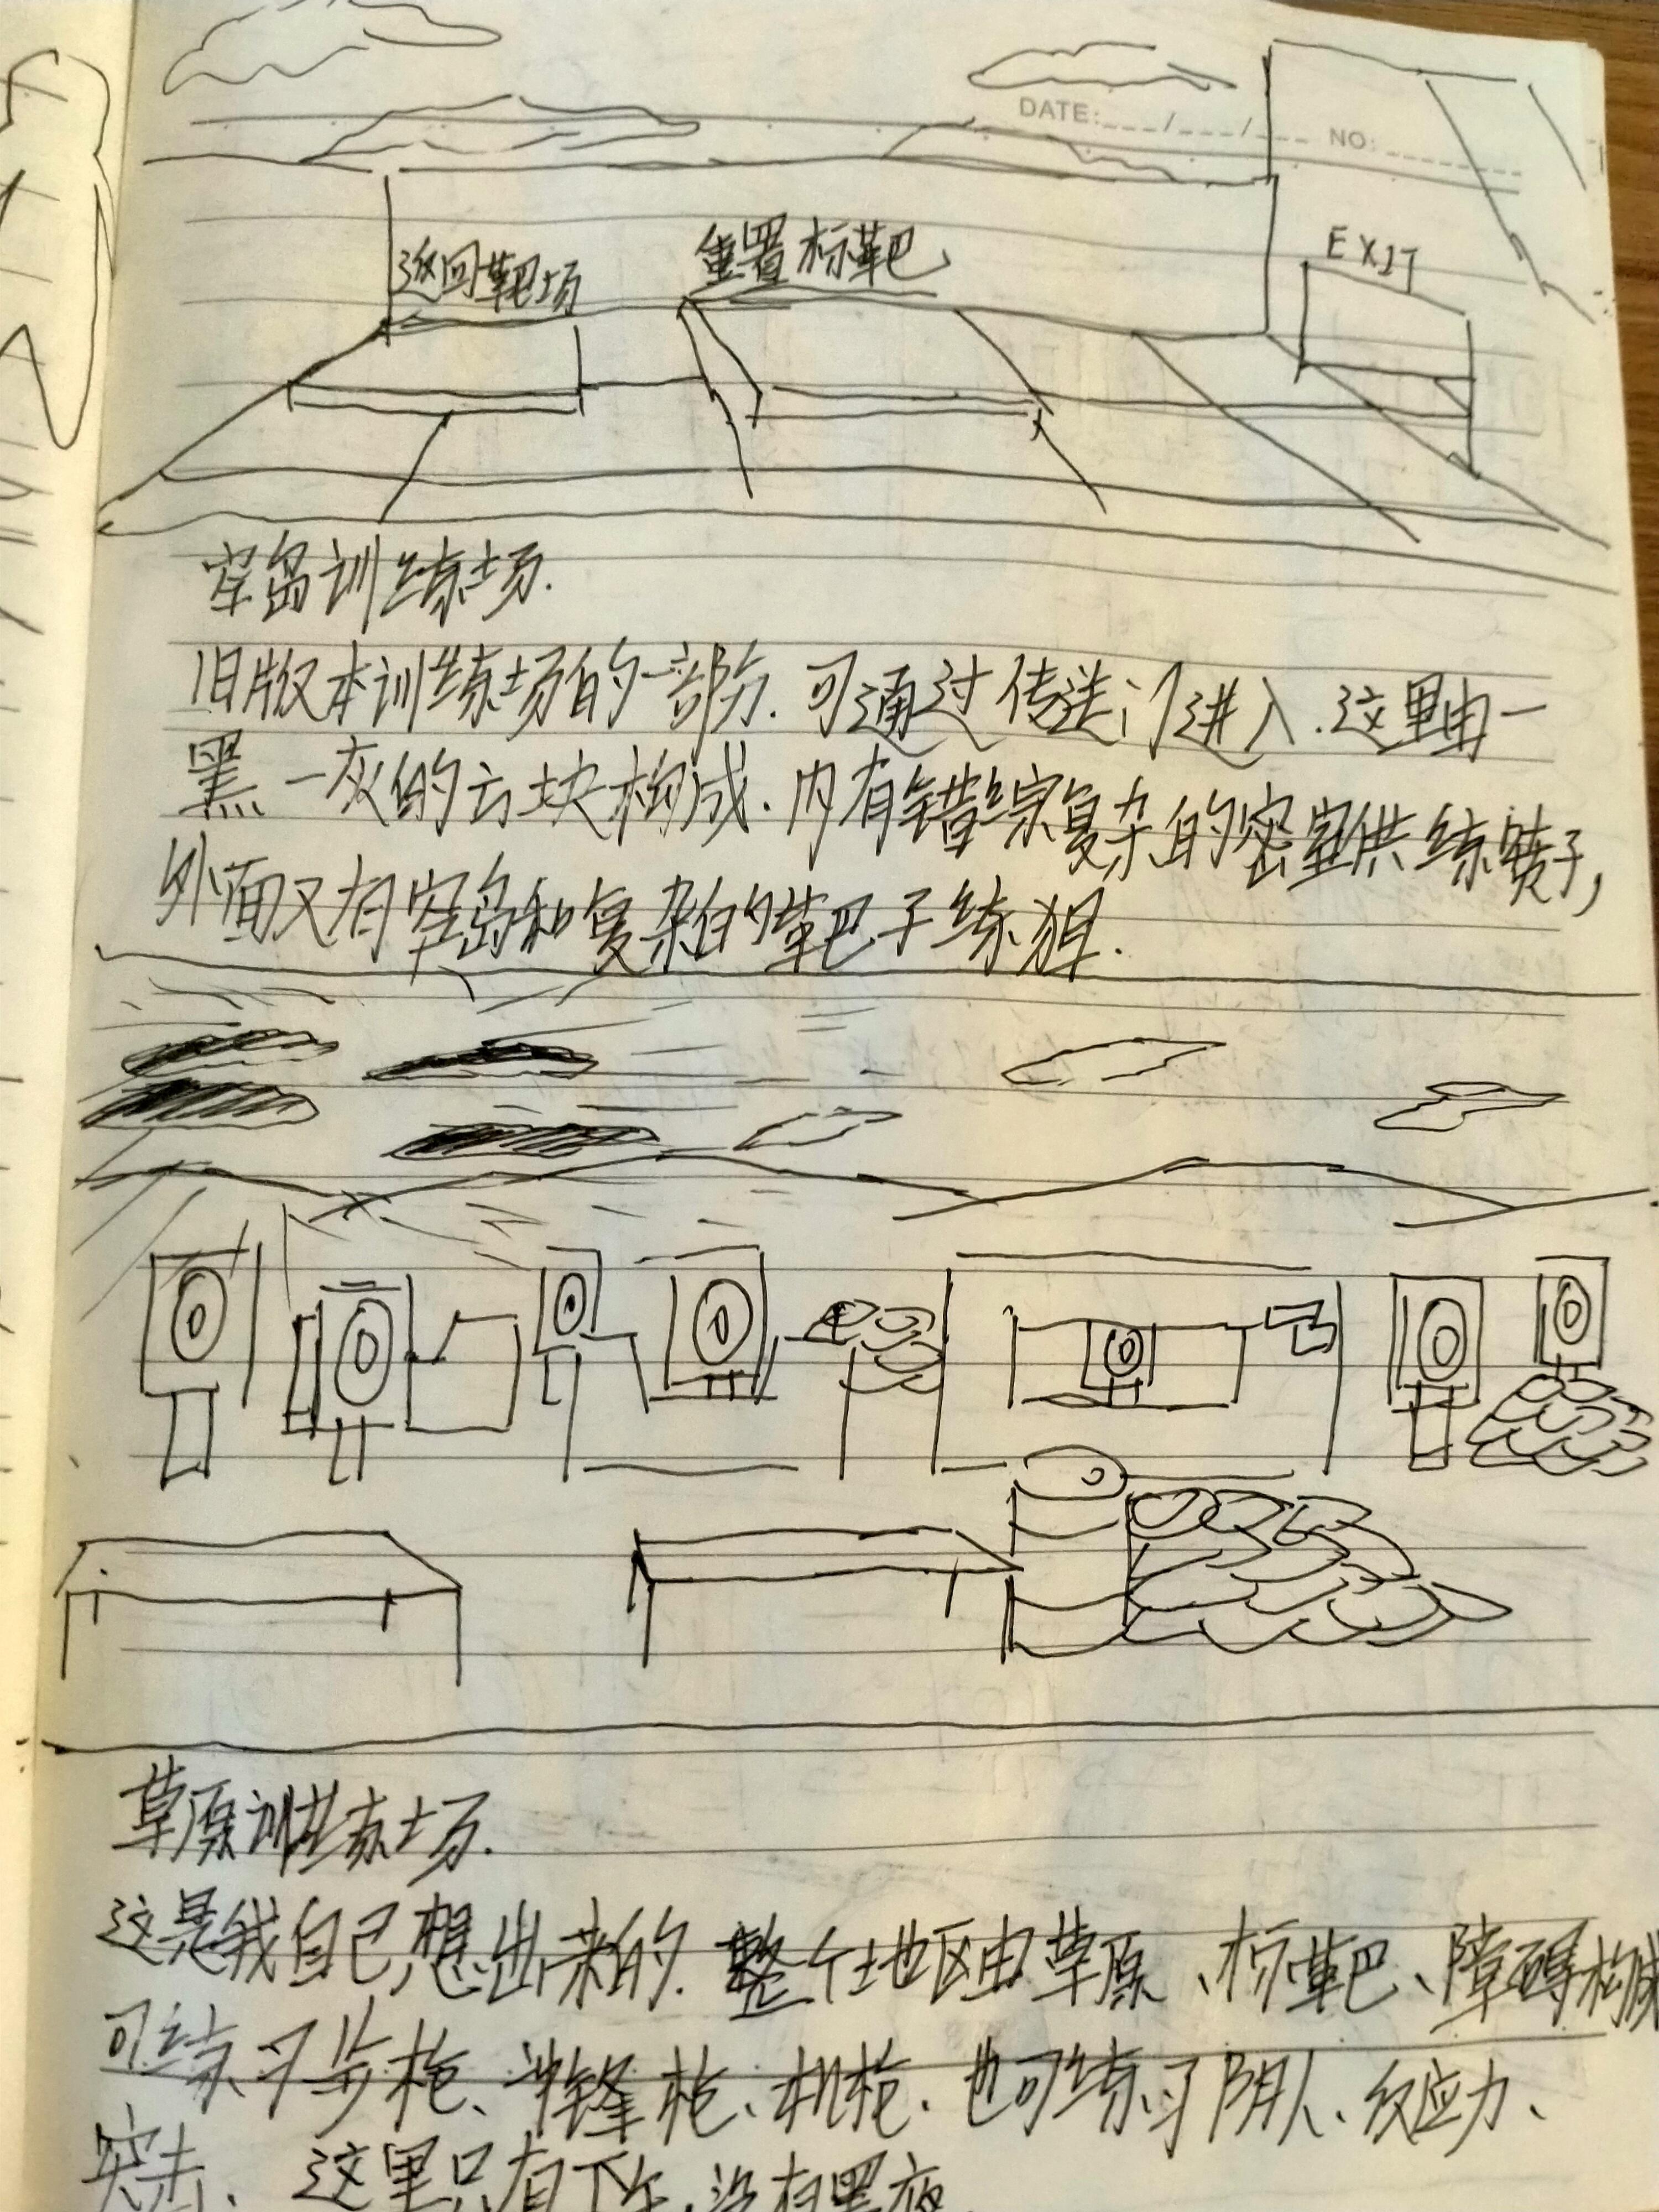 DATE: ___/___/___ NO: ______
返回靶场 重置标靶 EXIT
空岛训练场.
旧版本训练场的一部分.可通过传送门进入.这里由一
黑一灰的方块构成.内有错综复杂的密室供练喷子,
外面又有空岛和复杂的靶子练狙.
草原训练场.
这是我自己想出来的.整个地区由草原、标靶、障碍构成
可练习步枪、冲锋枪、机枪.也可练习阴人、反应力、
突击、这里只有下午,没有黑夜.